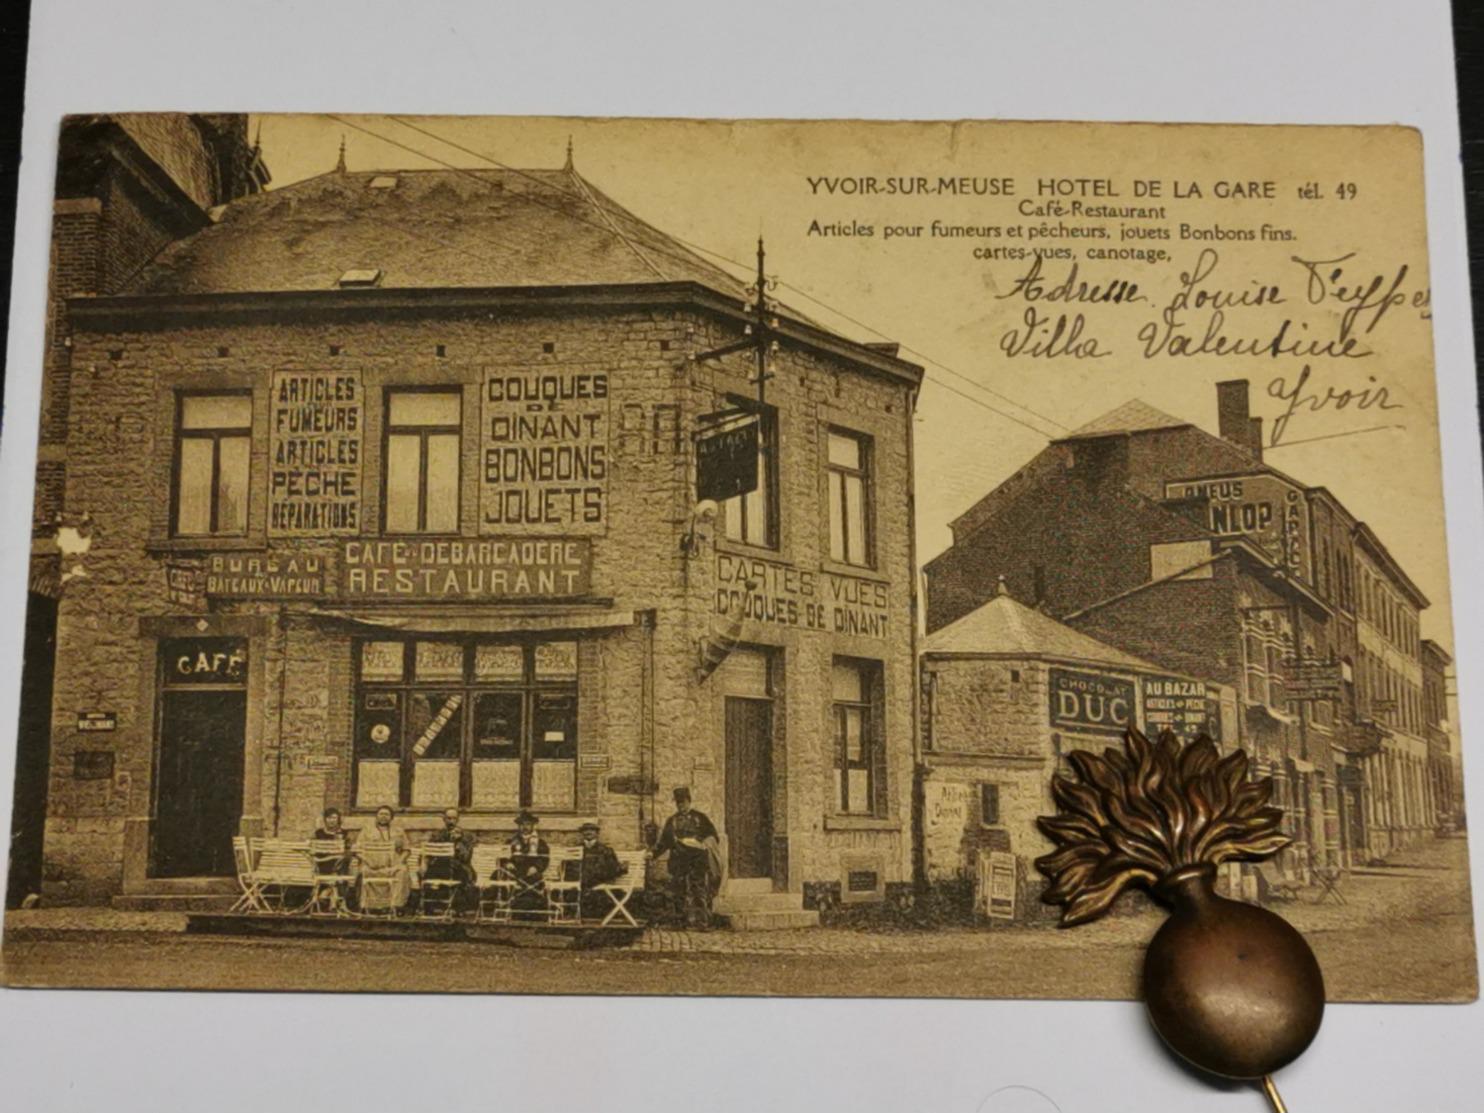 YVOIR-SUR-MEUSE HOTEL DE LA GARE tél. 49
Café-Restaurant
Articles pour fumeurs et pêcheurs, jouets Bonbons fins.
cartes-vues, canotage,
Adresse. Louise
Villa Valentine
Yvoir
ARTICLES
FUMEURS
ARTICLES
PÊCHE
RÉPARATIONS
COUQUES
DE
DINANT
BONBONS
JOUETS
BUREAU
BATEAUX-VAPEUR
CAFÉ-DEBARCADERE
RESTAURANT
CARTES VUES
COUQUES DE DINANT
CAFÉ
PNEUS
NLOP
CHOCOLAT
DUC
AU BAZAR
ARTICLES PÊCHE
DINANT